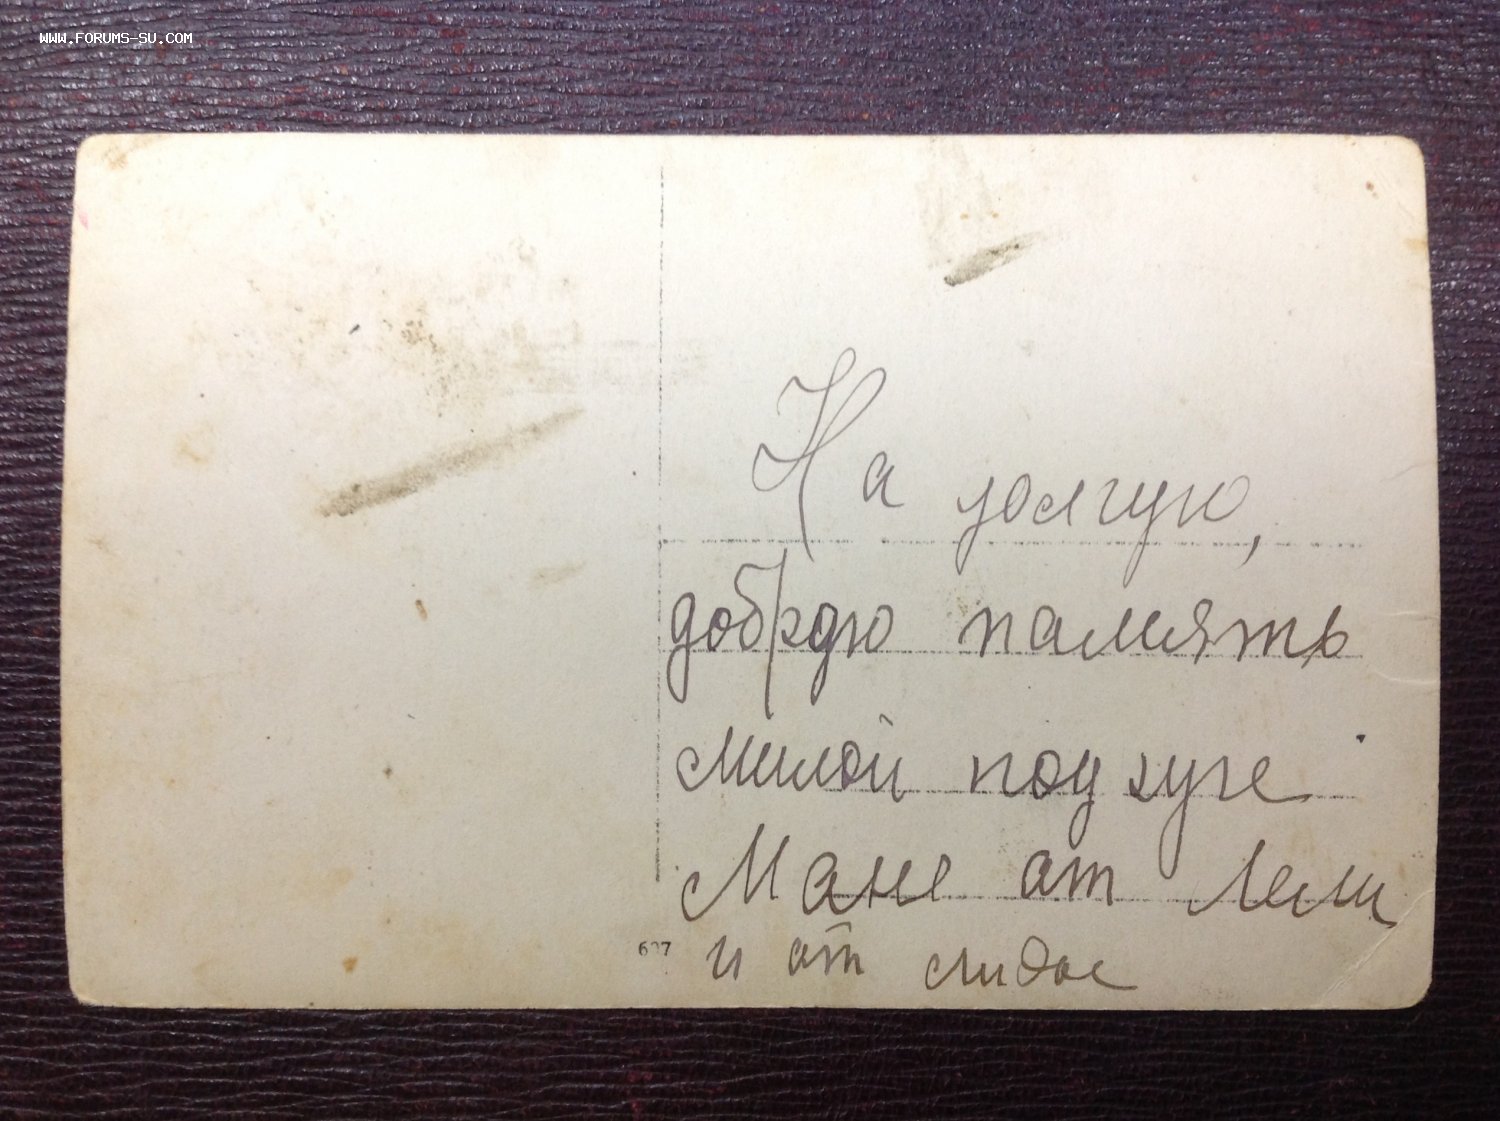 WWW.FORUMS-SU.COM
На долгую,
добрую память
милой подруге
Мане от Лели
637
и от